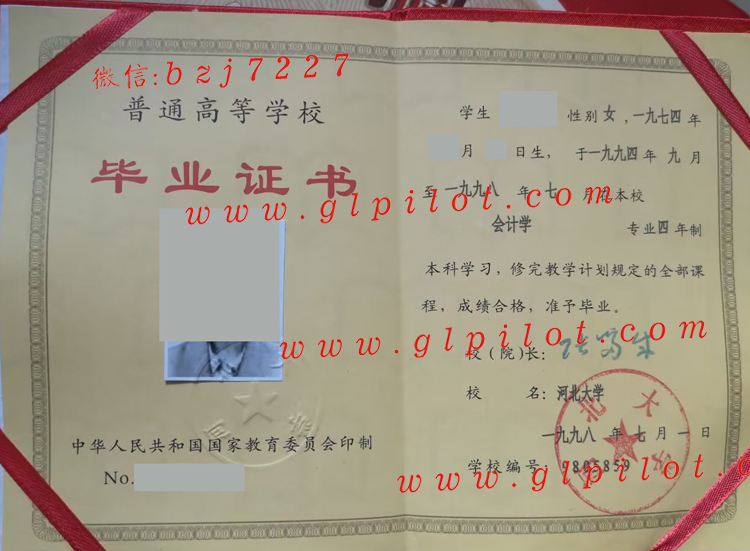 微信:bzj7227
普通高等学校
毕业证书
www.glpilot.com
www.glpilot.com
中华人民共和国国家教育委员会印制
No.
学生 性别 女 ,一九七四年
月 日生，于一九九四年 九 月
至 一九九八 年 七 月在本校
会计学 专业四年制
本科学习，修完教学计划规定的全部课
程，成绩合格，准予毕业。
校(院)长：
校 名：河北大学
一九九八 年 七 月 一 日
学校编号：9805859
河北大学
www.glpilot.c